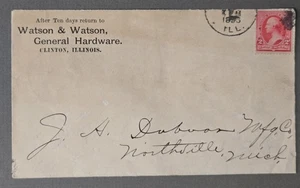 After Ten days return to
Watson & Watson,
General Hardware.
CLINTON, ILLINOIS.
1895
ILL.
J. A. Dobson Mfg. Co,
Northville,
Mich.